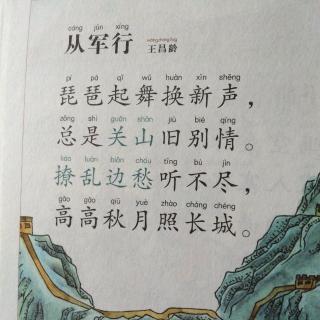 cóng jūn xíng
从军行 王昌龄
pí pá qǐ wǔ huàn xīn shēng
琵琶起舞换新声，
zǒng shì guān shān jiù bié qíng
总是关山旧别情。
liáo luàn biān chóu tīng bú jìn
撩乱边愁听不尽，
gāo gāo qiū yuè zhào cháng chéng
高高秋月照长城。